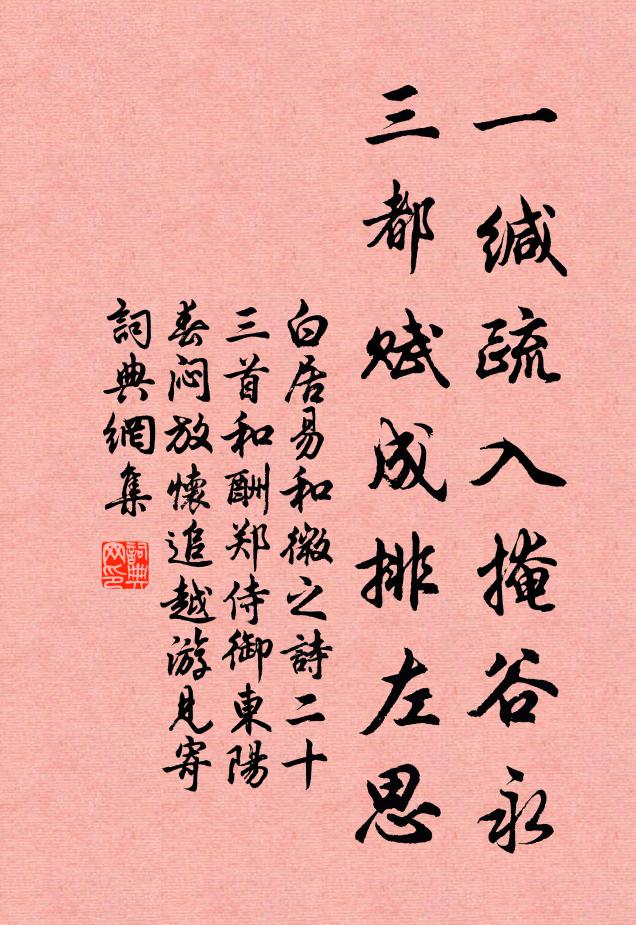 一缄疏入掩谷永
三都赋成排左思
白居易和微之詩二十
三首和酬郑侍御東陽
春闷放懷追越游見寄
詞典網集
詞典網印